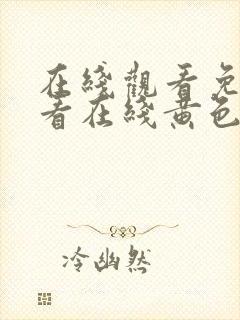 在綫觀看免
看在綫黄色
冷幽然